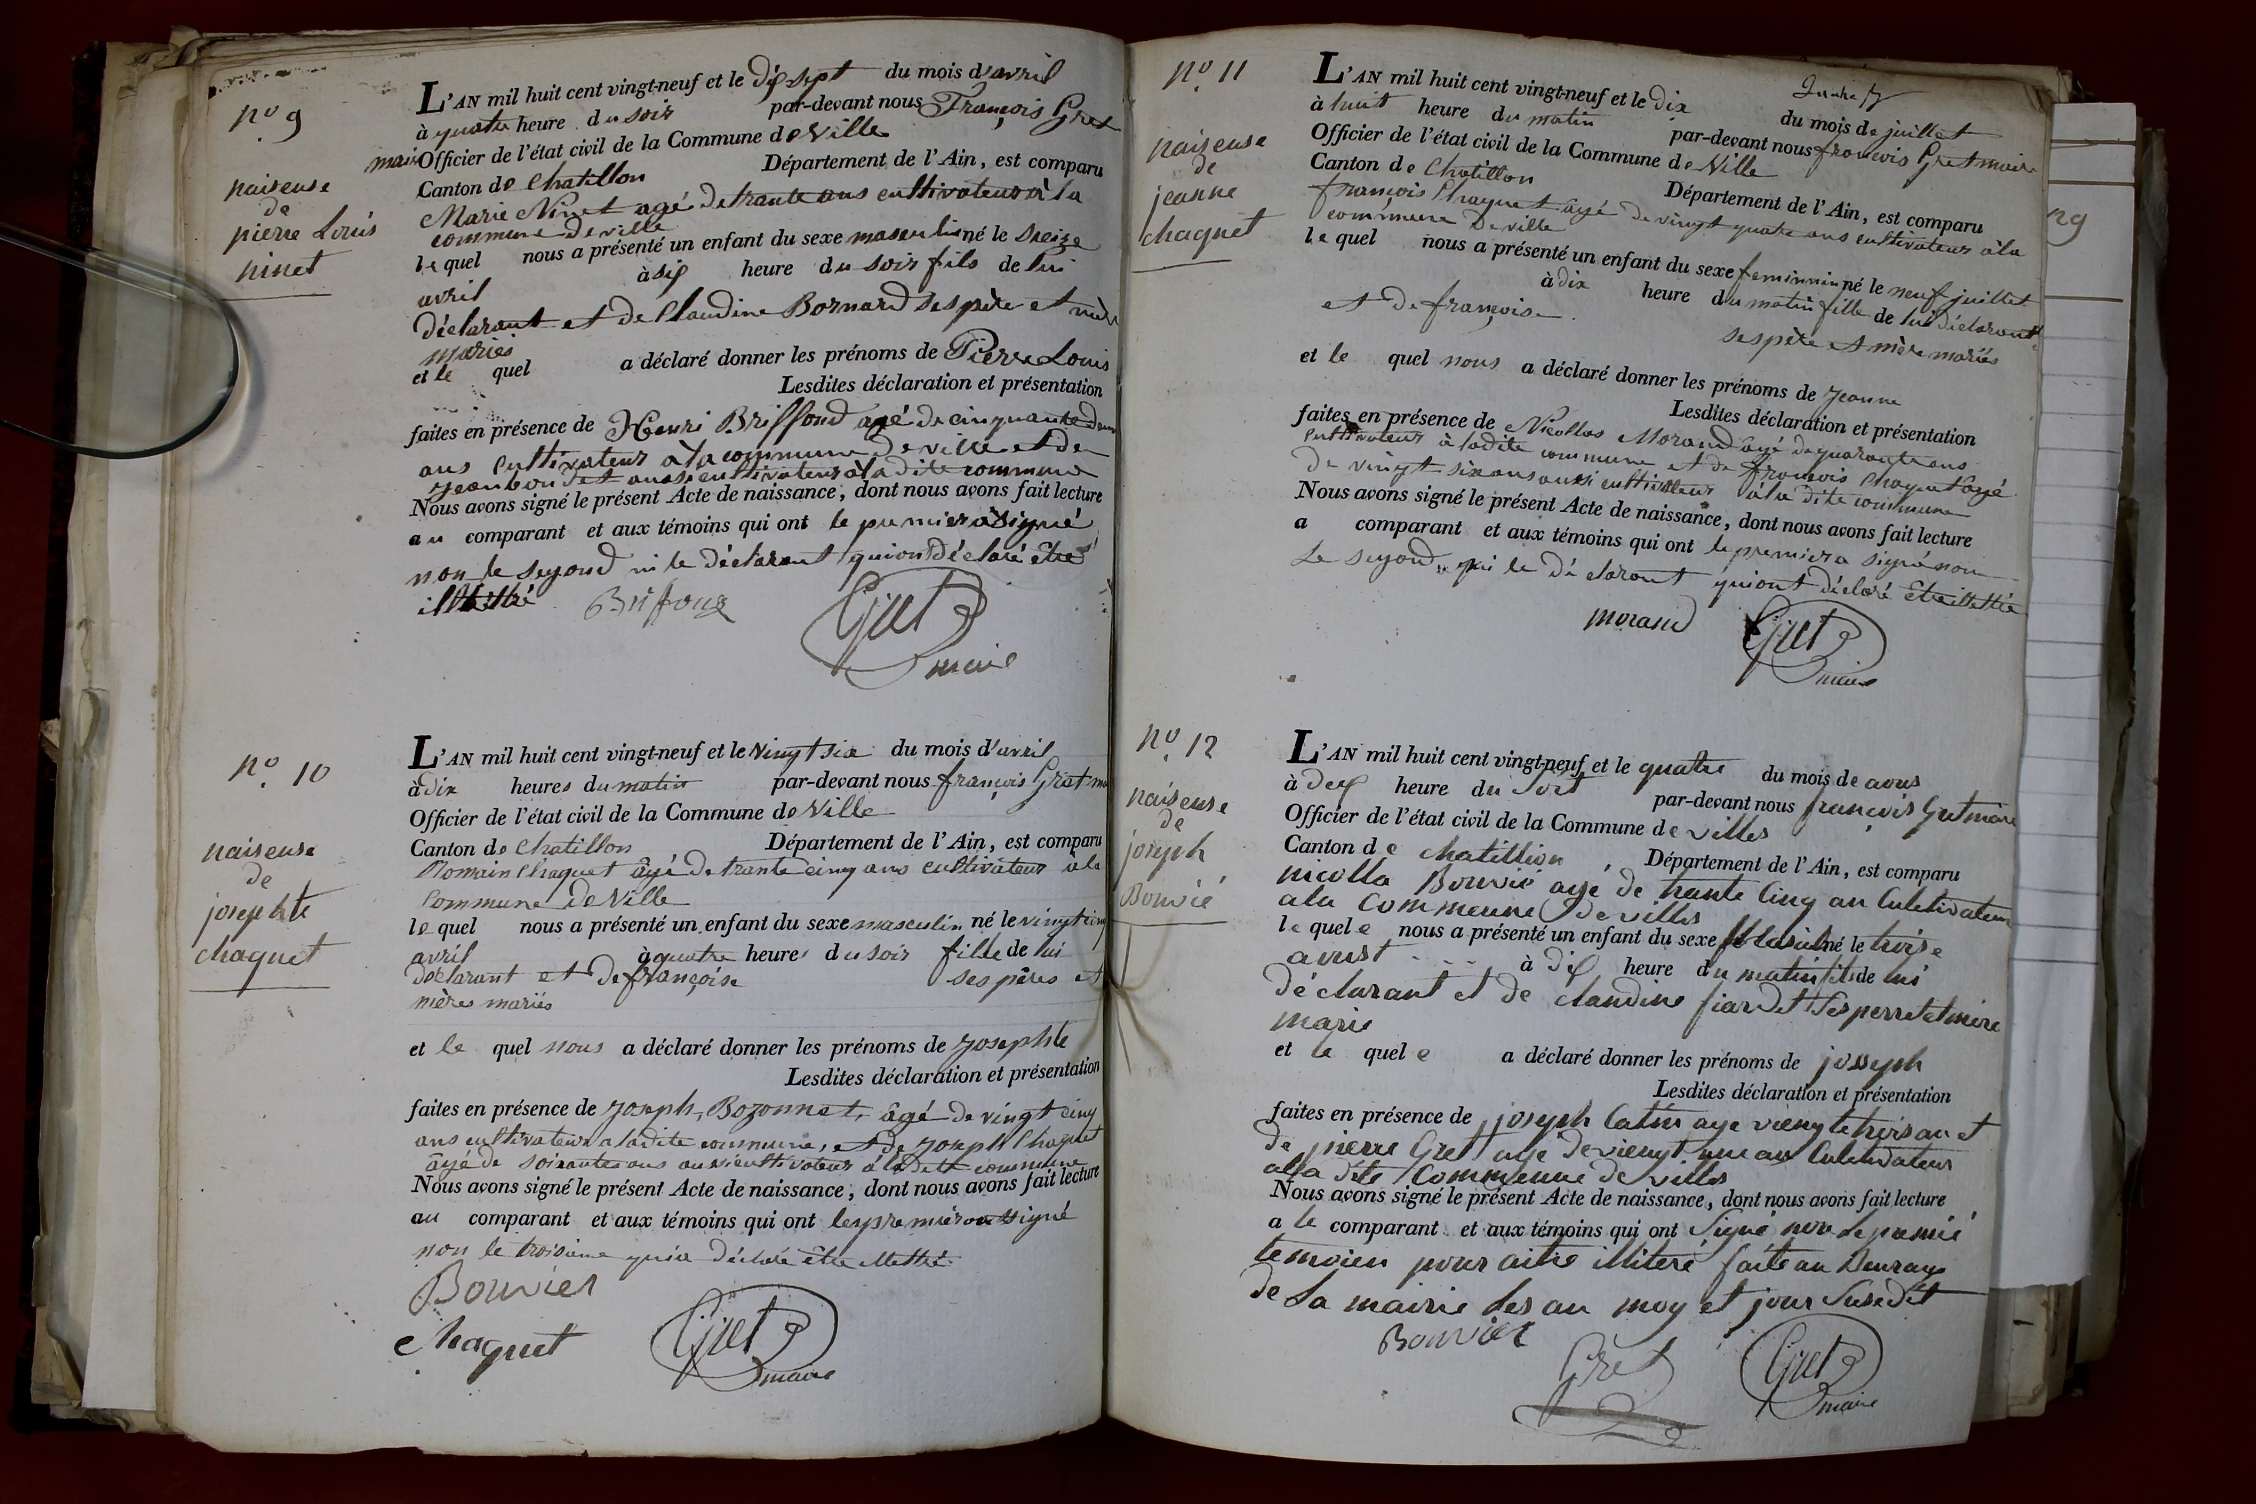 nº 9
naiseuse
de
pierre Louis
ninet
L'AN mil huit cent vingt-neuf et le dix sept du mois d'avril
à quatre heure du soir par-devant nous François Gret
maire Officier de l'état civil de la Commune de Ville
Canton de Chatillon Département de l'Ain, est comparu
Marie Ninet agé de trante ans cultivateur à la
commune de ville
le quel nous a présenté un enfant du sexe masculin né le Seize
avril à six heure du soir fils de lui
déclarant et de Claudine Bornard ses père et mère
mariés
et le quel a déclaré donner les prénoms de Pierre Louis
Lesdites déclaration et présentation
faites en présence de Henri Briffoud agé de cinquante deux
ans cultivateur à la commune de ville et de
jean bondet aussi cultivateur à la dite commune
Nous avons signé le présent Acte de naissance, dont nous avons fait lecture
au comparant et aux témoins qui ont le pumier a signé
non le segond ni le déclarant qui ont déclaré être
illettré Briffoud
Gret
maire
nº 10
naiseuse
de
josephte
chaquet
L'AN mil huit cent vingt-neuf et le vingt six du mois d'avril
à dix heures du matin par-devant nous françois Gret
Officier de l'état civil de la Commune de Ville
Canton de Chatillon Département de l'Ain, est comparu
Romain Chaquet âgé de trante cinq ans cultivateur à la
Commune de Ville
le quel nous a présenté un enfant du sexe masculin né le vingt cinq
avril à quatre heures du soir fille de lui
déclarant et de françoise ses pères et
mères mariés
et le quel nous a déclaré donner les prénoms de josephte
Lesdites déclaration et présentation
faites en présence de joseph Bozonnet, âgé de vingt cinq
ans cultivateur a ladite commune, et de joseph Chaquet
âgé de soixante ans aussi cultivateur à ladite commune
Nous avons signé le présent Acte de naissance, dont nous avons fait lecture
au comparant et aux témoins qui ont les premier ont signé
non le troisième qui a déclaré être illettré
Bouvier
Chaquet
Gret
maire
nº 11
naiseuse
de
jeanne
chaquet
L'AN mil huit cent vingt-neuf et le dix du mois de juillet
à huit heure du matin par-devant nous françois Gret maire
Officier de l'état civil de la Commune de Ville
Canton de Chatillon Département de l'Ain, est comparu
françois Chaquet âgé de vingt quatre ans cultivateur à la
commune de ville
le quel nous a présenté un enfant du sexe feminnin né le neuf juillet
à dix heure du matin fille de lui déclarant
et de françoise ses père et mère mariés
et le quel nous a déclaré donner les prénoms de jeanne
Lesdites déclaration et présentation
faites en présence de Nicollas Morand âgé de quarante ans
cultivateur à ladite commune et de françois Chaquet âgé
de vingt six ans aussi cultivateur à la dite commune
Nous avons signé le présent Acte de naissance, dont nous avons fait lecture
a comparant et aux témoins qui ont le premier a signé non
le segond ni le déclarant qui ont déclaré être illettré
morand Gret
maire
nº 12
naiseuse
de
joseph
Bouvié
L'AN mil huit cent vingt-neuf et le quatre du mois de aous
à dix heure du Soit par-devant nous françois Gret maire
Officier de l'état civil de la Commune de villes
Canton de chatillion, Département de l'Ain, est comparu
nicolla Bouvié agé de trante Cinq an Culetivateur
a la Commeune de villes
le quel e nous a présenté un enfant du sexe né le troise
avust à dix heure du matin fils de lui
déclarant et de claudine fiardet Ses perre et mère
marie
et le quel e a déclaré donner les prénoms de josseph
Lesdites déclaration et présentation
faites en présence de joseph Catin aye viengte trois an et
de pierre Gret aye de viengt une an Culetivateur
alla dite Commeune de villes
Nous avons signé le présent Acte de naissance, dont nous avons fait lecture
a le comparant et aux témoins qui ont Signé non le premié
temoien pour aitre illiteré faite au Beuraux
de La mairie les an moy et jour Susedit
Bouvier
Gret
Gret
maire